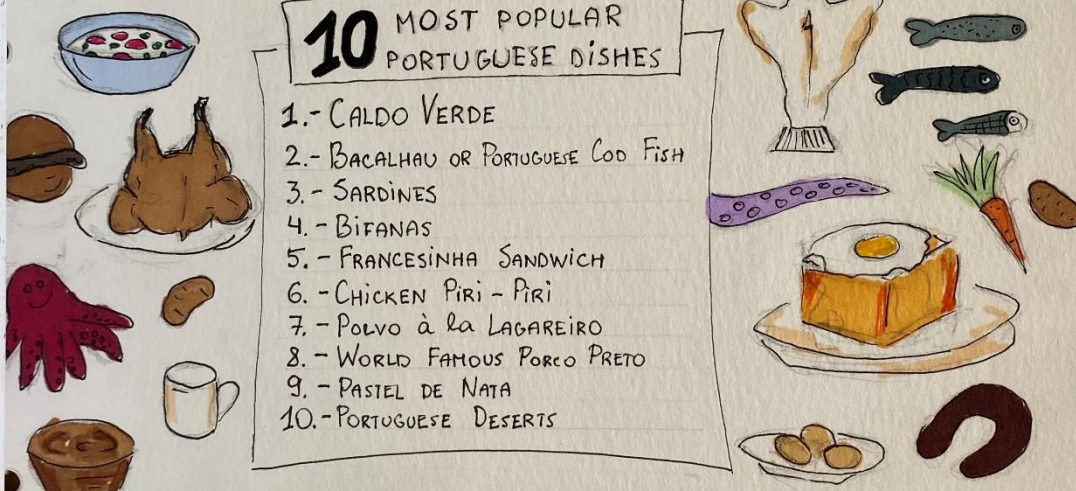 10 MOST POPULAR
PORTUGUESE DISHES
1.- CALDO VERDE
2.- BACALHAU OR PORTUGUESE COD FISH
3.- SARDINES
4.- BIFANAS
5.- FRANCESINHA SANDWICH
6.- CHICKEN PIRI-PIRI
7.- POLVO à la LAGAREIRO
8.- WORLD FAMOUS PORCO PRETO
9.- PASTEL DE NATA
10.- PORTUGUESE DESERTS